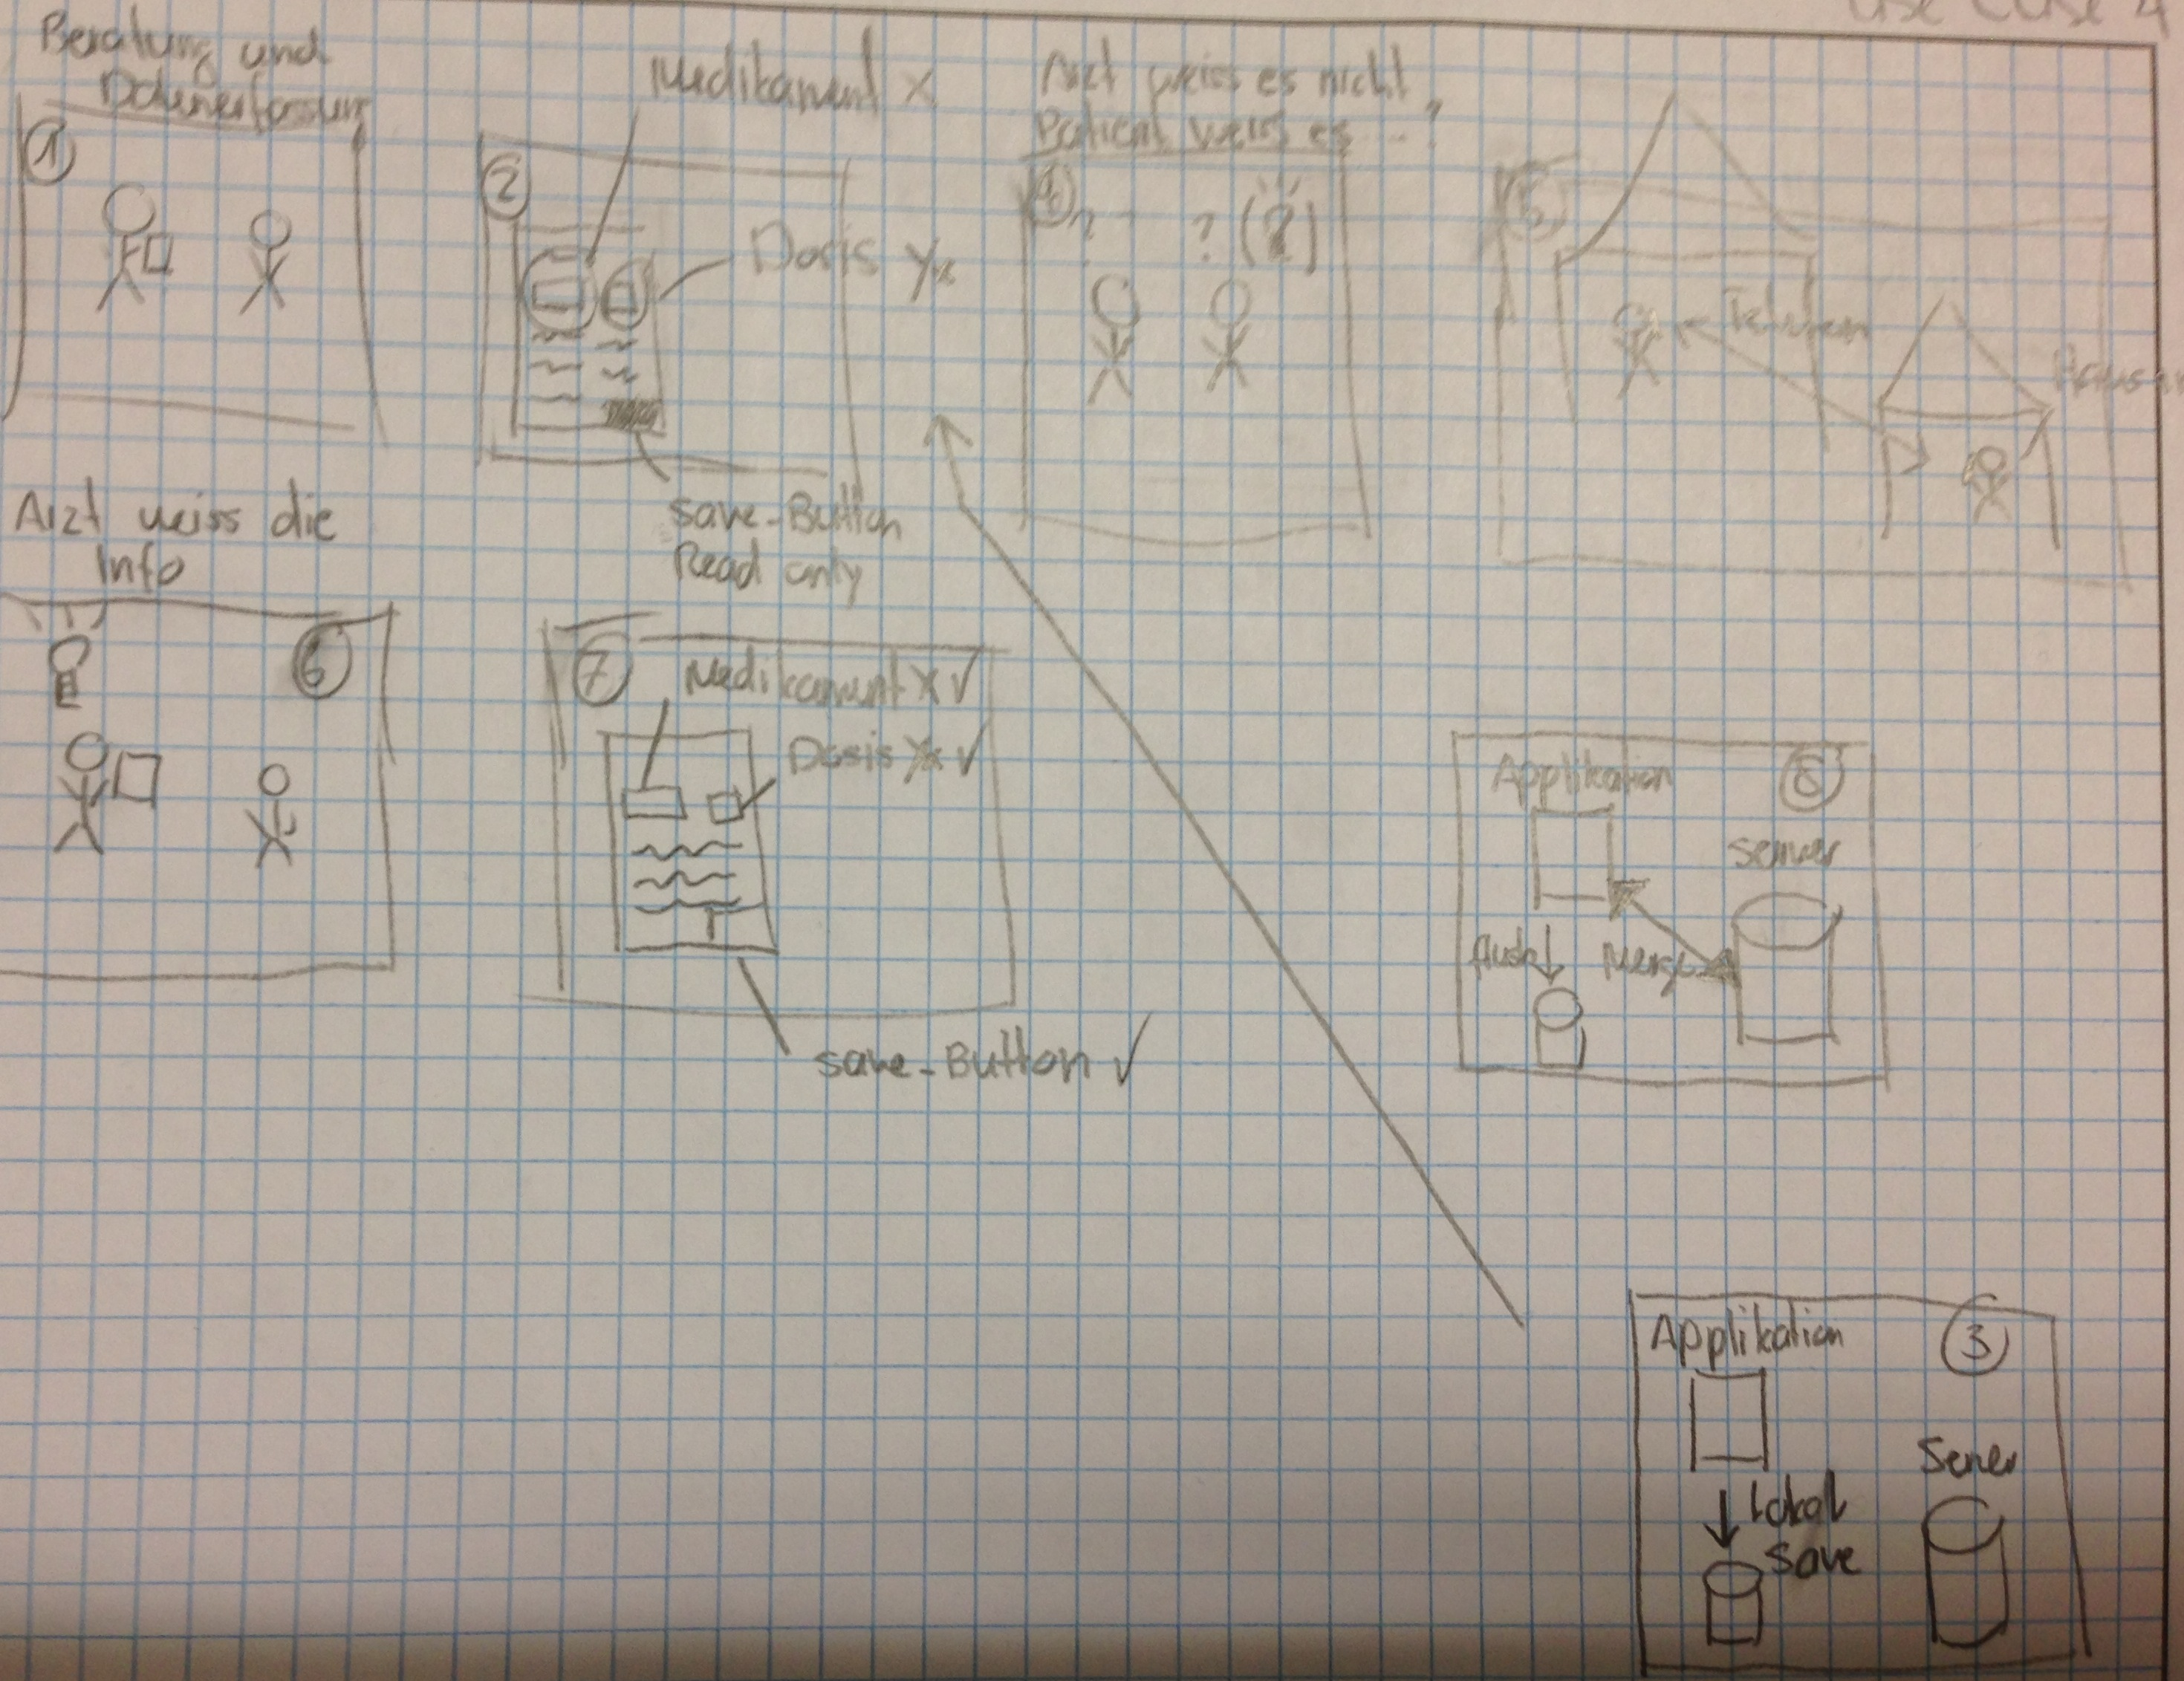 Use Case 4
Beratung und
Datenerfassung
1
Medikament X
2
Dosis Yx
save-Button
Read only
Arzt weiss es nicht,
Patient weiss es ... ?
4
? ? (?)
5
Telefon
Arzt weiss die
Info
6
7
Medikament X ✓
Dosis Yx ✓
save-Button ✓
Applikation
8
Server
Merge
Applikation
3
Server
Lokal
Save